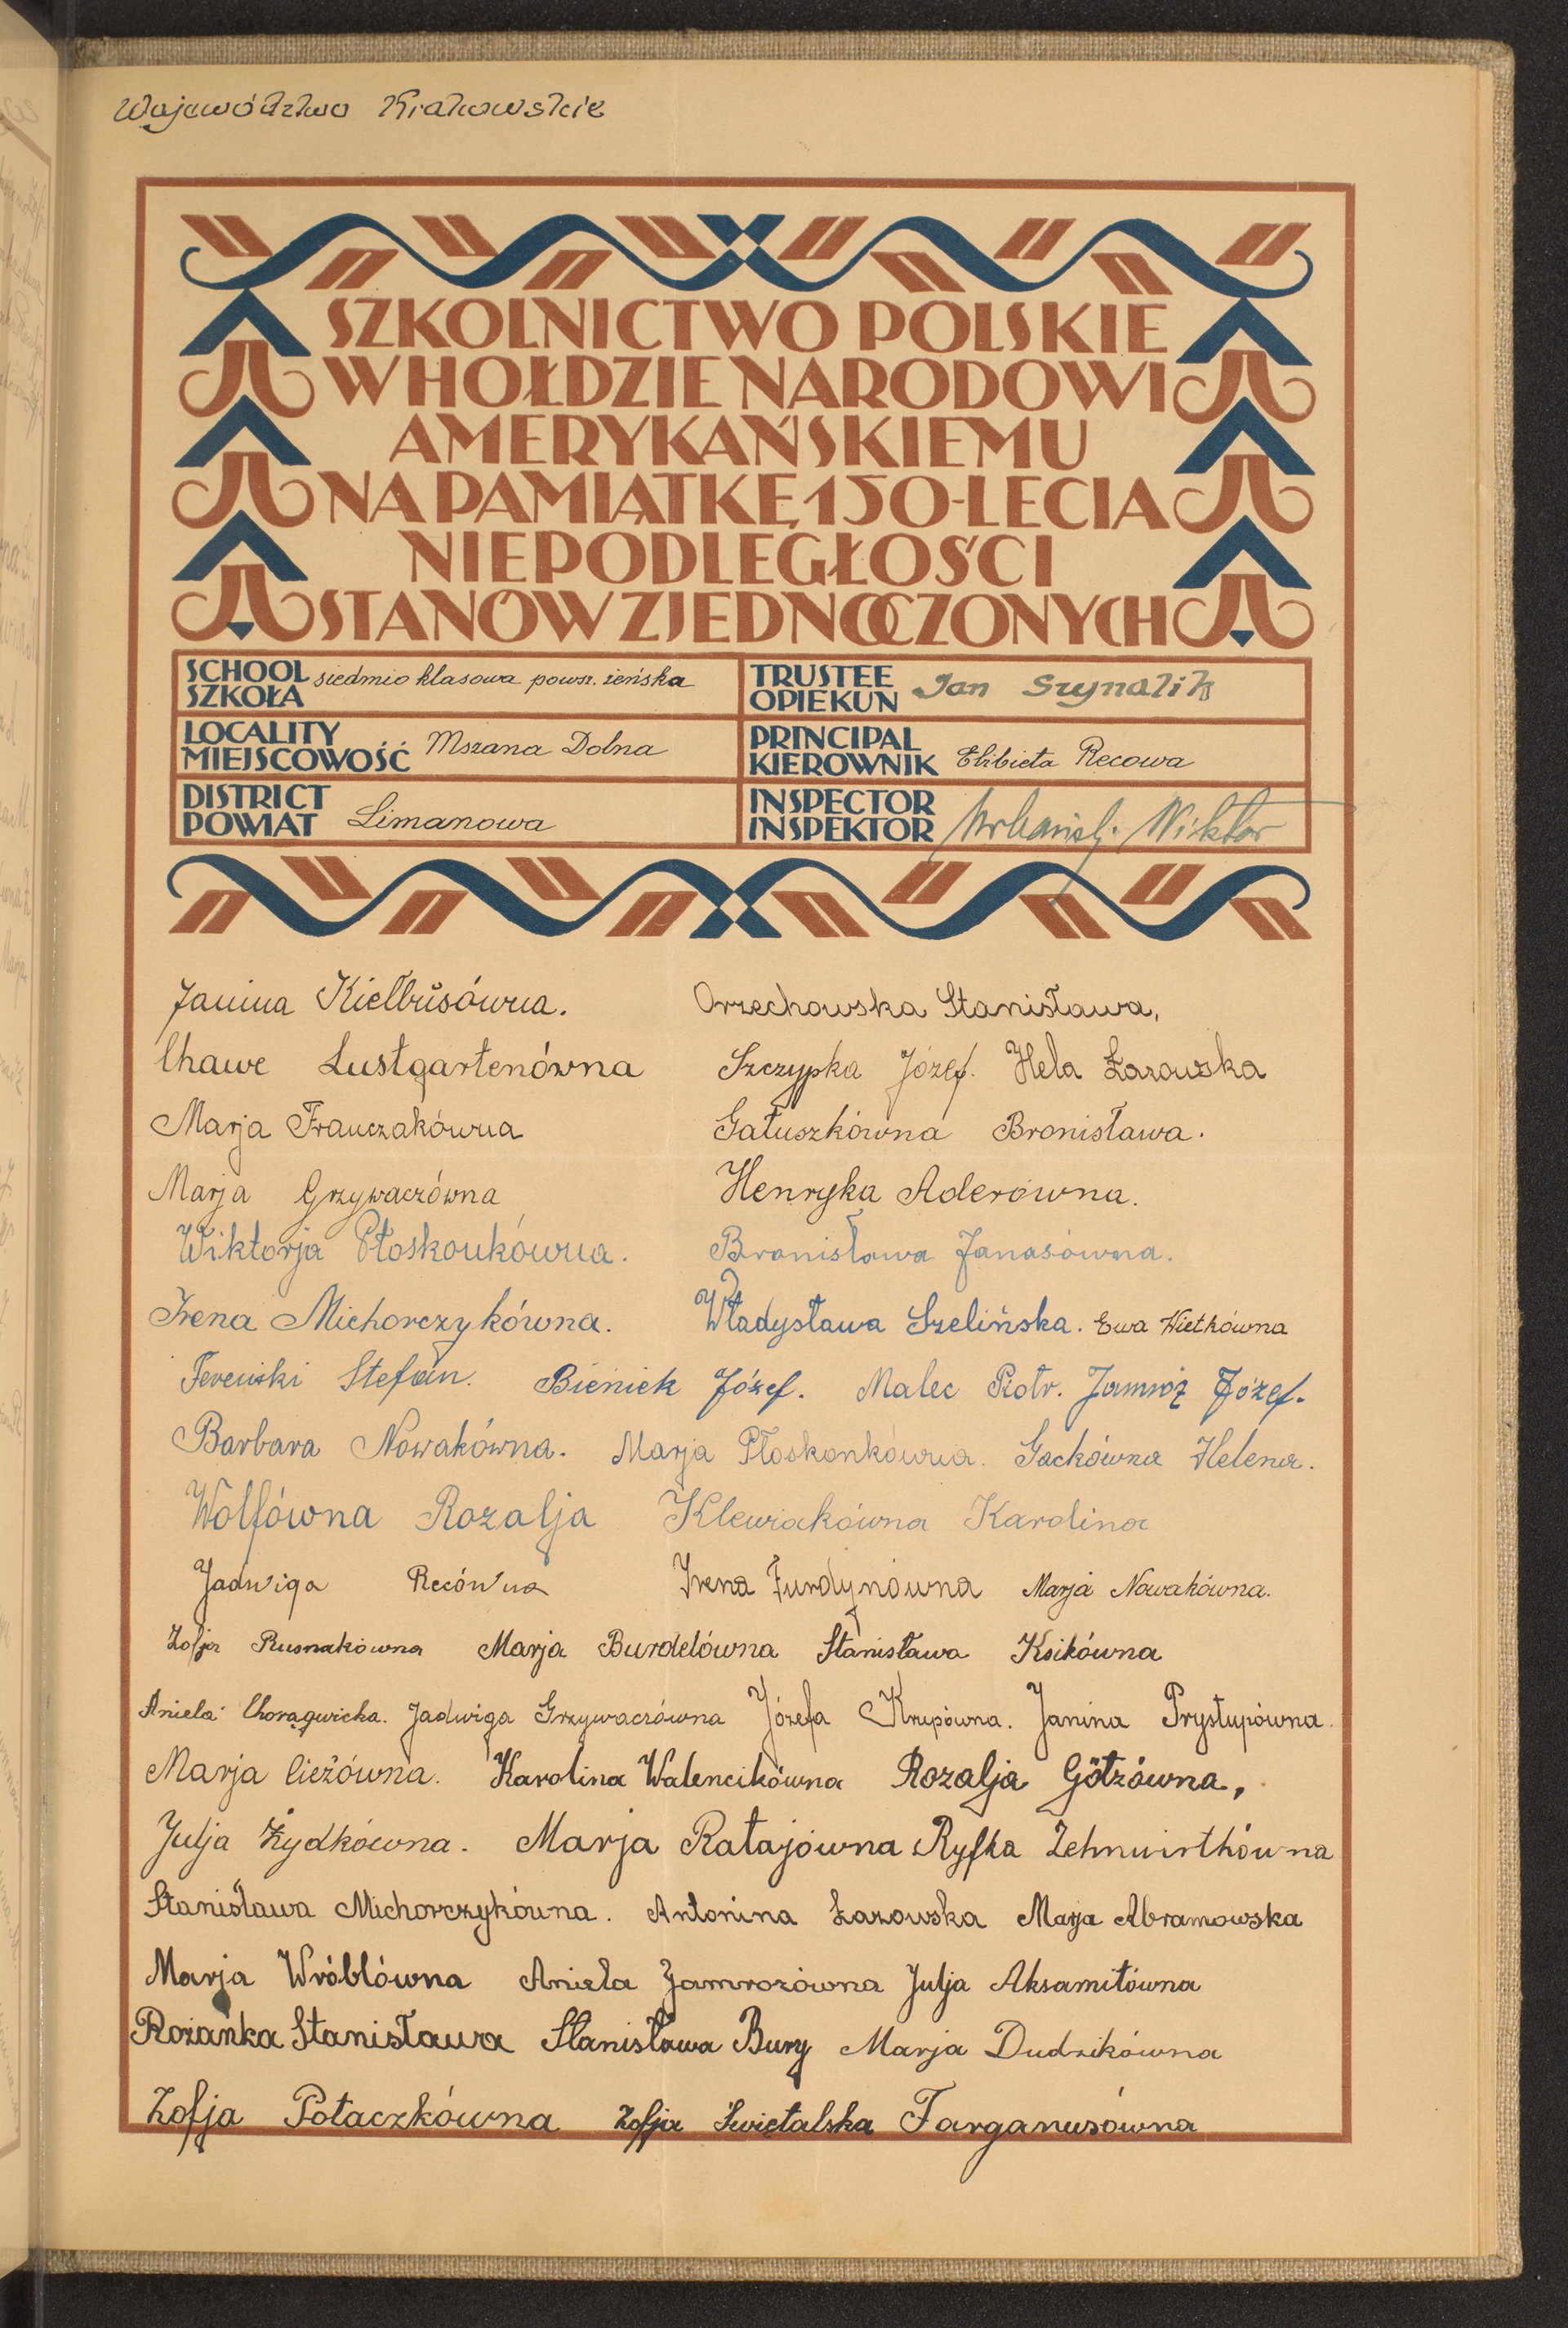 Województwo Krakowskie
SZKOLNICTWO POLSKIE
W HOŁDZIE NARODOWI
AMERYKAŃSKIEMU
NA PAMIĄTKĘ 150-LECIA
NIEPODLEGŁOŚCI
STANÓW ZJEDNOCZONYCH
SCHOOL
SZKOŁA siedmio klasowa powsz. żeńska
TRUSTEE
OPIEKUN Jan Szynalik
LOCALITY
MIEJSCOWOŚĆ Mszana Dolna
PRINCIPAL
KIEROWNIK Elżbieta Recowa
DISTRICT
POWIAT Limanowa
INSPECTOR
INSPEKTOR Wiktor
Janina Kiełbusówna. Orzechowska Stanisława,
Chawe Lustgartenówna Szczypka Józef. Hela Łazowska
Marja Franczakówna Gałuszkówna Bronisława.
Marja Grzywaczówna Henryka Aderówna.
Wiktorja Płoskonkówna. Bronisława Janasówna.
Irena Michorczykówna. Władysława Szelińska. Ewa Wietkówna
Stefan. Bieniek Józef. Malec Piotr. Jamróz Józef.
Barbara Nowakówna. Marja Płoskonkówna. Gackówna Helena.
Wolfówna Rozalja Klewiakówna Karolina
Jadwiga Recówna Irena Furdynówna Marja Nowakówna.
Zofja Rusnakówna Marja Burdelówna Stanisława Ksikówna
Aniela Chorągwicka. Jadwiga Grzywaczówna Józefa Krupówna. Janina Prystupówna.
Marja Cieżówna. Karolina Walencikówna Rozalja Götzówna,
Julja Żydkówna. Marja Ratajówna Ryfka Zehnwirthówna
Stanisława Michorczykówna. Antonina Łazowska Marja Abramowska
Marja Wróblówna Aniela Jamrozówna Julja Aksamitówna
Rożanka Stanisława Stanisława Bury Marja Dudzikówna
Zofja Potaczkówna Zofja Świętalska Farganusówna